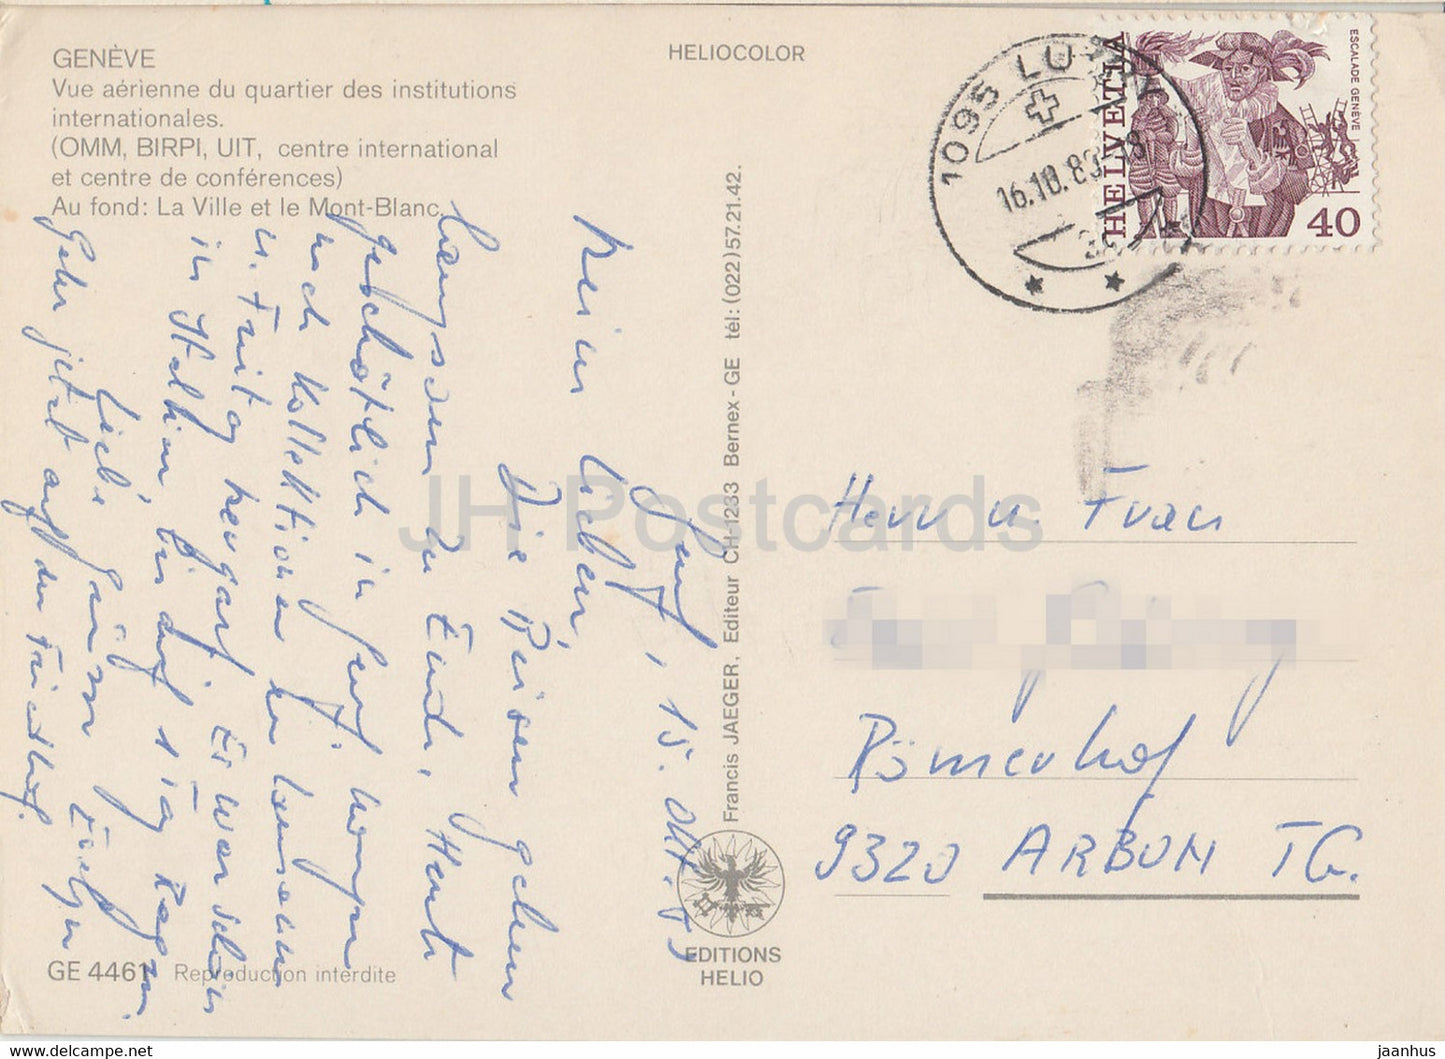 GENÈVE
Vue aérienne du quartier des institutions
internationales.
(OMM, BIRPI, UIT, centre international
et centre de conférences)
Au fond: La Ville et le Mont-Blanc.
HELIOCOLOR
Genf, 15. Okt. 83
Meine Lieben,
Die Reisen gehen
langsam zu Ende. Heute
geschöpflich in Genf,
nach Kollektionen
u. Freitag bergauf. Es war schön
in Italien, bis auf 1 Tag Regen.
Liebe Grüsse
Geht jetzt auf den Friedhof.
Francis JAEGER, Editeur CH-1233 Bernex-GE tél: (022) 57.21.42.
EDITIONS
HELIO
GE 4461 Reproduction interdite
1095 LUTRY
16.10.83-18
HELVETIA
ESCALADE GENÈVE
40
Herrn u. Frau
Römerhof
9320 ARBON TG.
JH Postcards
jaan.hus
jaanhus — https://www.delcampe.net